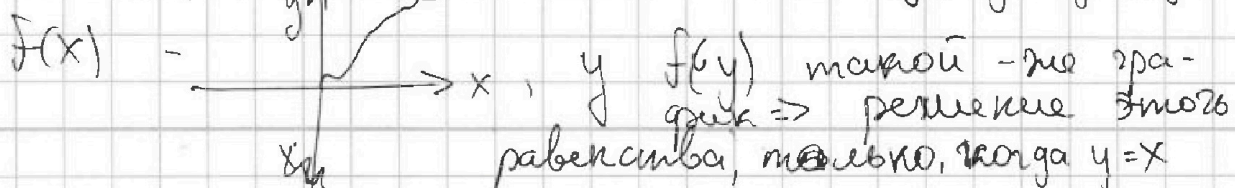 f(x) - y x , у f(y) такой-же гра-
фик => решение этого
x равенства, только, когда y=x